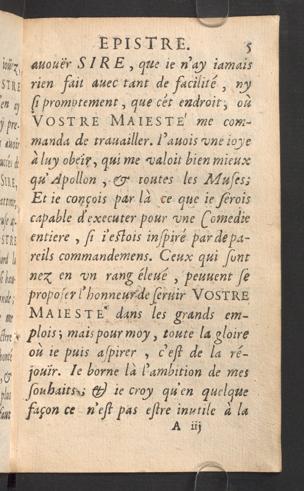 EPISTRE. 5
auouër SIRE, que ie n'ay iamais
rien fait auec tant de facilité, ny
si promptement, que cét endroit, où
VOSTRE MAIESTE' me com-
manda de trauailler. I'auois vne ioye
à luy obeïr, qui me valoit bien mieux
qu'Apollon, & toutes les Muses;
Et ie conçois par là ce que ie serois
capable d'executer pour vne Comedie
entiere, si i'estois inspiré par de pa-
reils commandemens. Ceux qui sont
nez en vn rang éleué, peuuent se
proposer l'honneur de seruir VOSTRE
MAIESTE' dans les grands em-
plois; mais pour moy, toute la gloire
où ie puis aspirer, c'est de la ré-
joüir. Ie borne là l'ambition de mes
souhaits; & ie croy qu'en quelque
façon ce n'est pas estre inutile à la
A iij